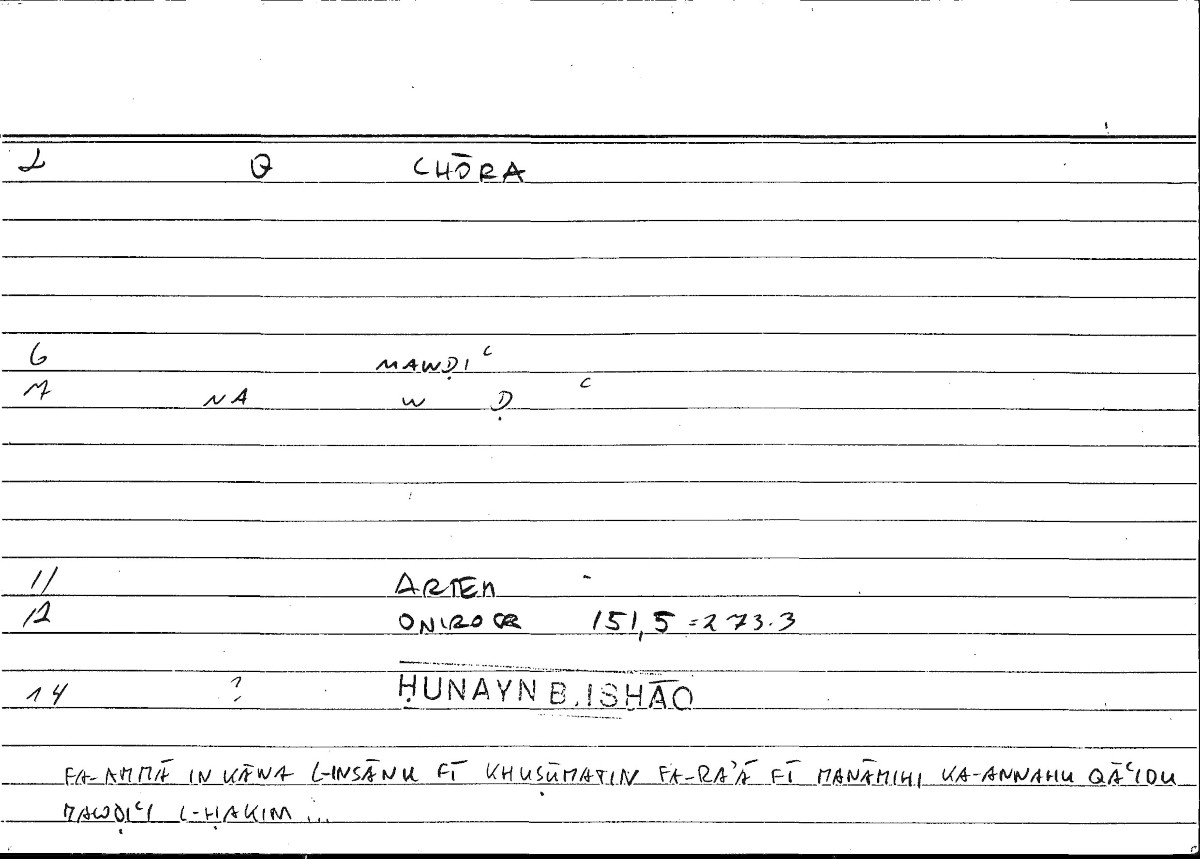 2 Q CHŌRA
6 MAWḌIʿ
7 NA W Ḍ ʿ
11 ARTEM
12 ONIROCR 151,5 = 273.3
14 ? ḤUNAYN B. ISḤĀQ
FA-AMMĀ IN KĀNA L-INSĀNU FĪ KHUṢŪMATIN FA-RAʾĀ FĪ MANĀMIHI KA-ANNAHU QĀʿIDU
MAWḌIʿI L-ḤAKIM ...